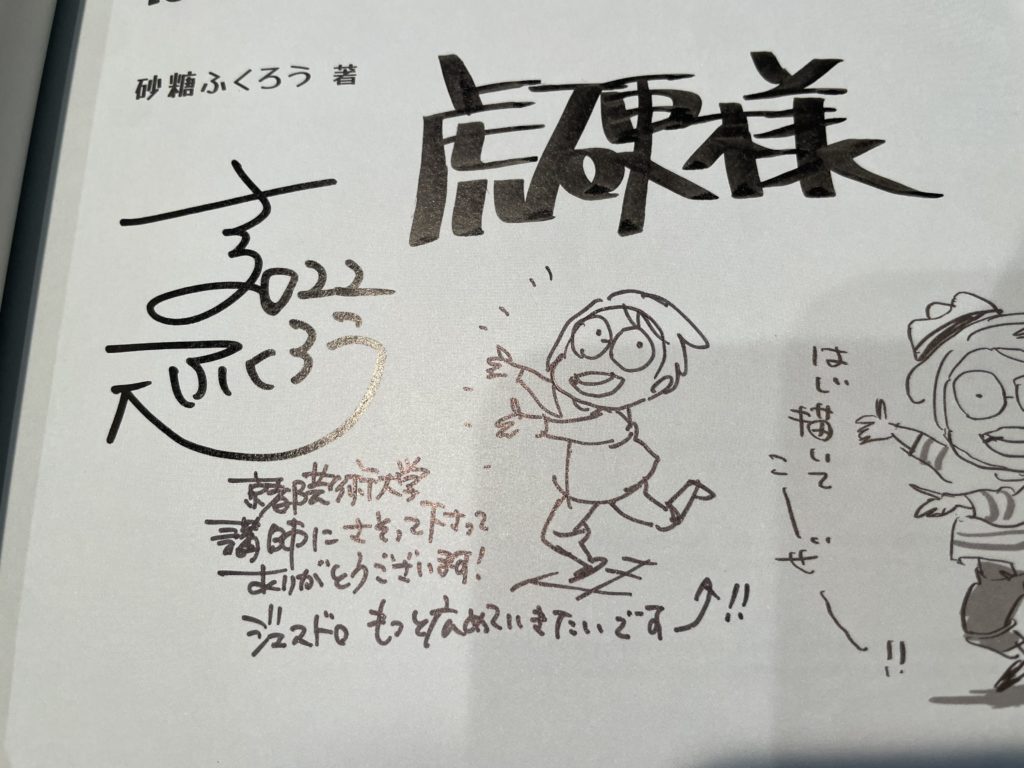 砂糖ふくろう 著
虎硬様
2022
ふくろう
京都芸術大学
講師にさそって下さって
ありがとうございます!
ジェスドロ もっと広めていきたいです !!
はじ描いて
こーぜ
!!